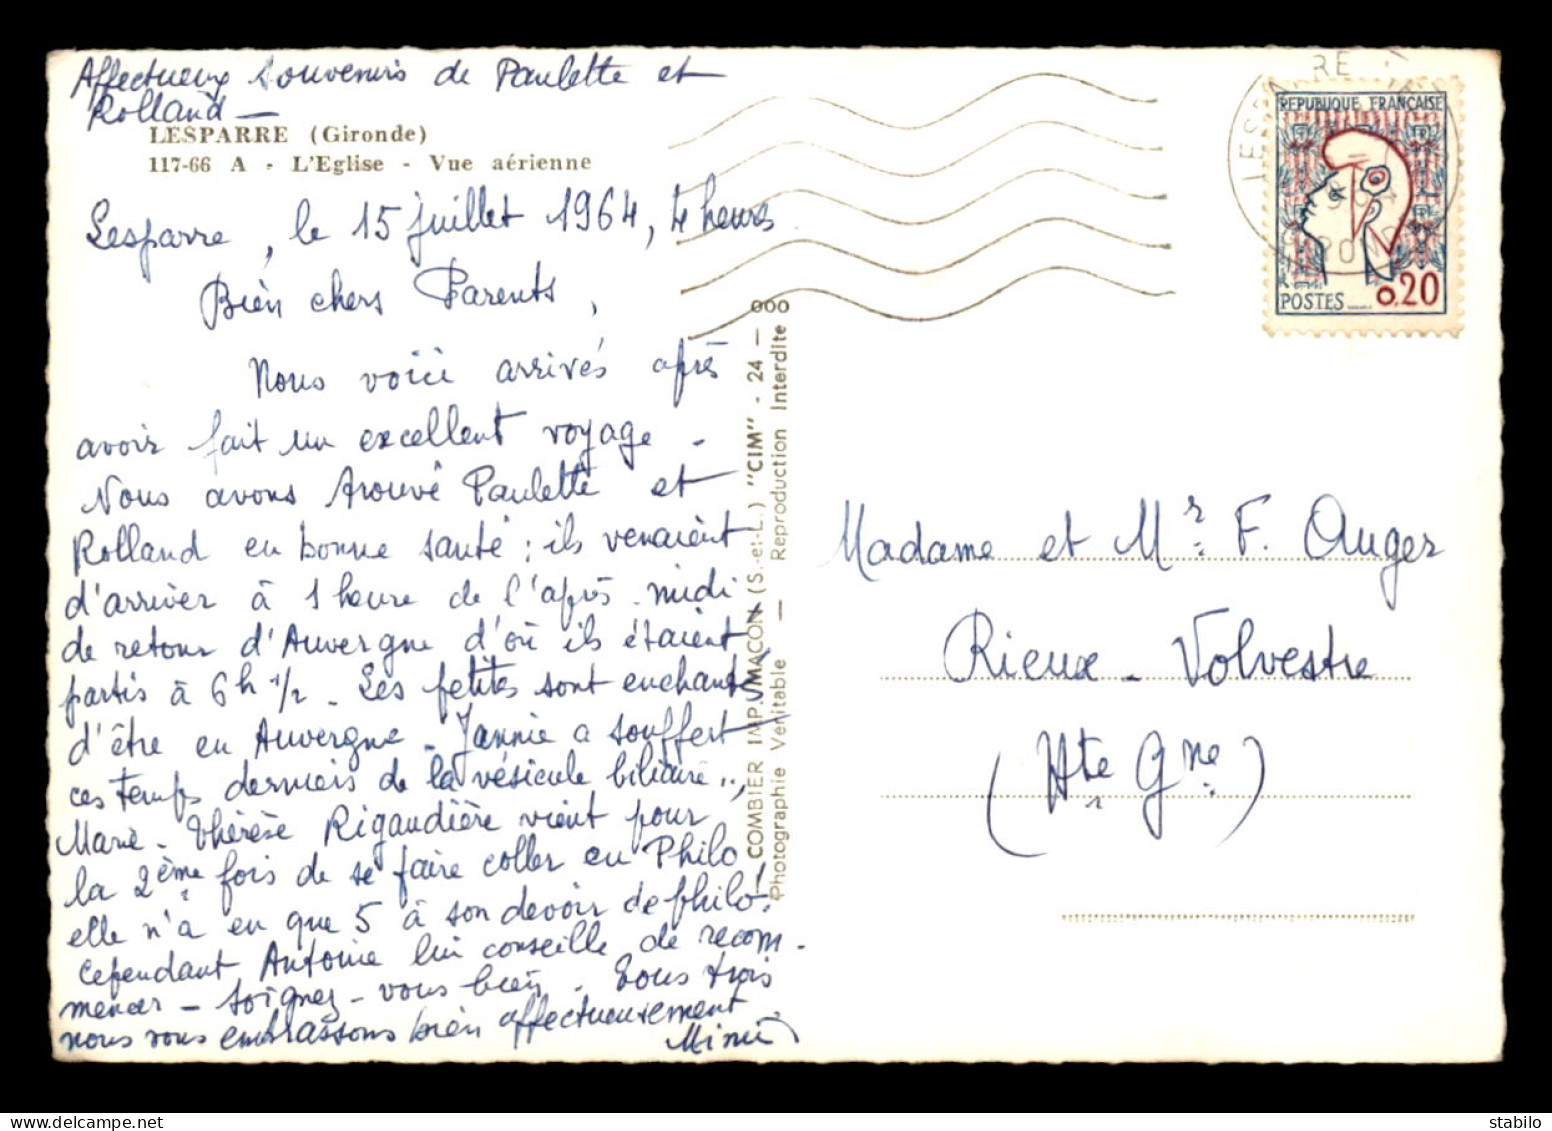 Affectueux souvenirs de Paulette et
Rolland —
LESPARRE (Gironde)
117-66 A - L'Eglise - Vue aérienne
Lesparre, le 15 juillet 1964, 4 heures
Bien chers Parents,
Nous voici arrivés après
avoir fait un excellent voyage.
Nous avons trouvé Paulette et
Rolland en bonne santé ; ils venaient
d'arriver à 1 heure de l'après-midi
de retour d'Auvergne d'où ils étaient
partis à 6h 1/2. Les petites sont enchantés
d'être en Auvergne. Jannie a souffert
ces temps derniers de la vésicule biliaire..,
Marie-Thérèse Rigaudière vient pour
la 2ème fois de se faire coller en Philo,
elle n'a eu que 5 à son devoir de philo!
Cependant Antoine lui conseille de recom-
mencer — Soignez-vous bien. Tous trois
nous vous embrassons bien affectueusement
Mimi
COMBIER IMP. MACON (S.-et-L.) "CIM" - 24 — 000
Photographie Véritable — Reproduction Interdite
LESPARRE
REPUBLIQUE FRANÇAISE
POSTES 0,20
Madame et Mr. F. Auger
Rieux-Volvestre
(Hte Gne)
SO_YEB_1 Delcampe.net